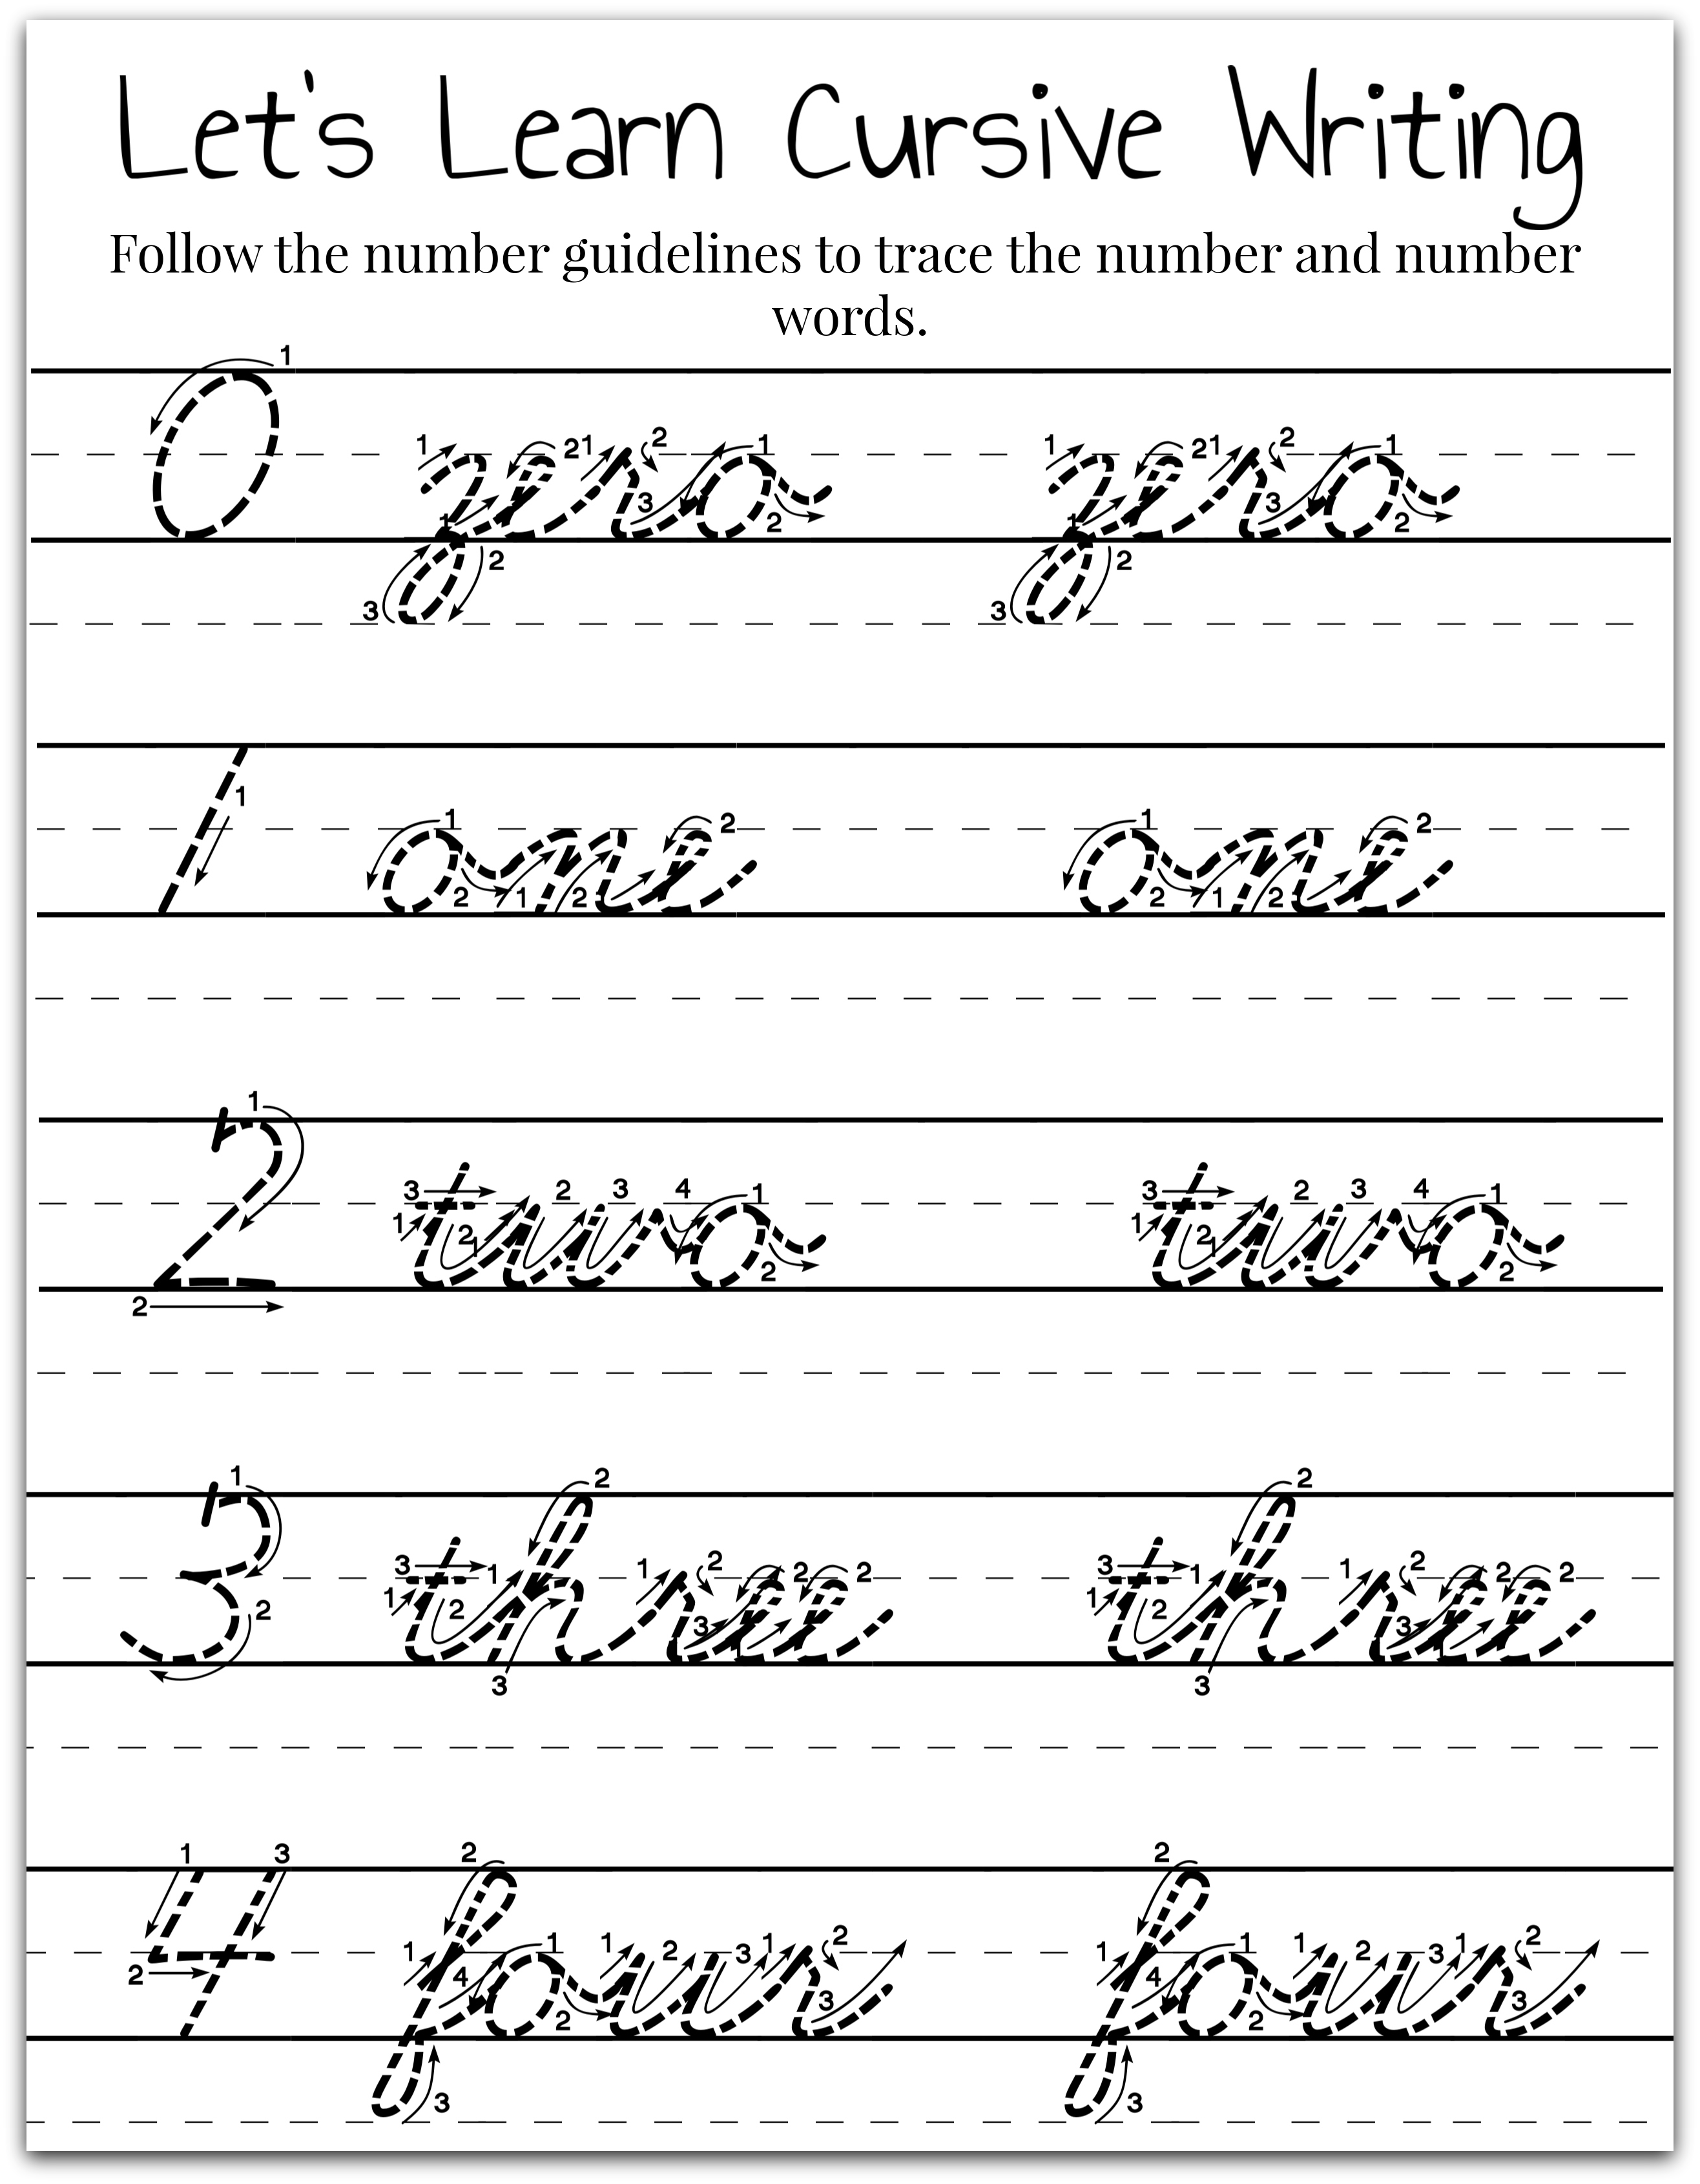 Let's Learn Cursive Writing
Follow the number guidelines to trace the number and number
words.
0 zero zero
1 one one
2 two two
3 three three
4 four four